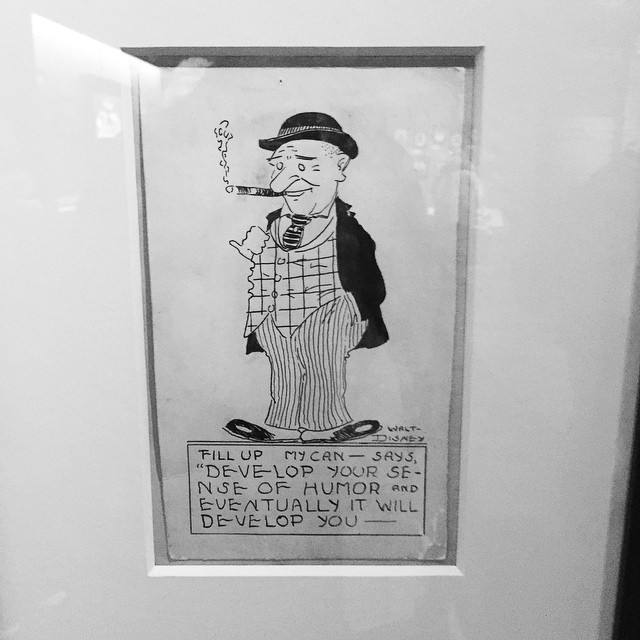 WALT-
DISNEY
FILL UP MY CAN — SAYS,
"DEVELOP YOUR SE-
NSE OF HUMOR AND
EVENTUALLY IT WILL
DEVELOP YOU —